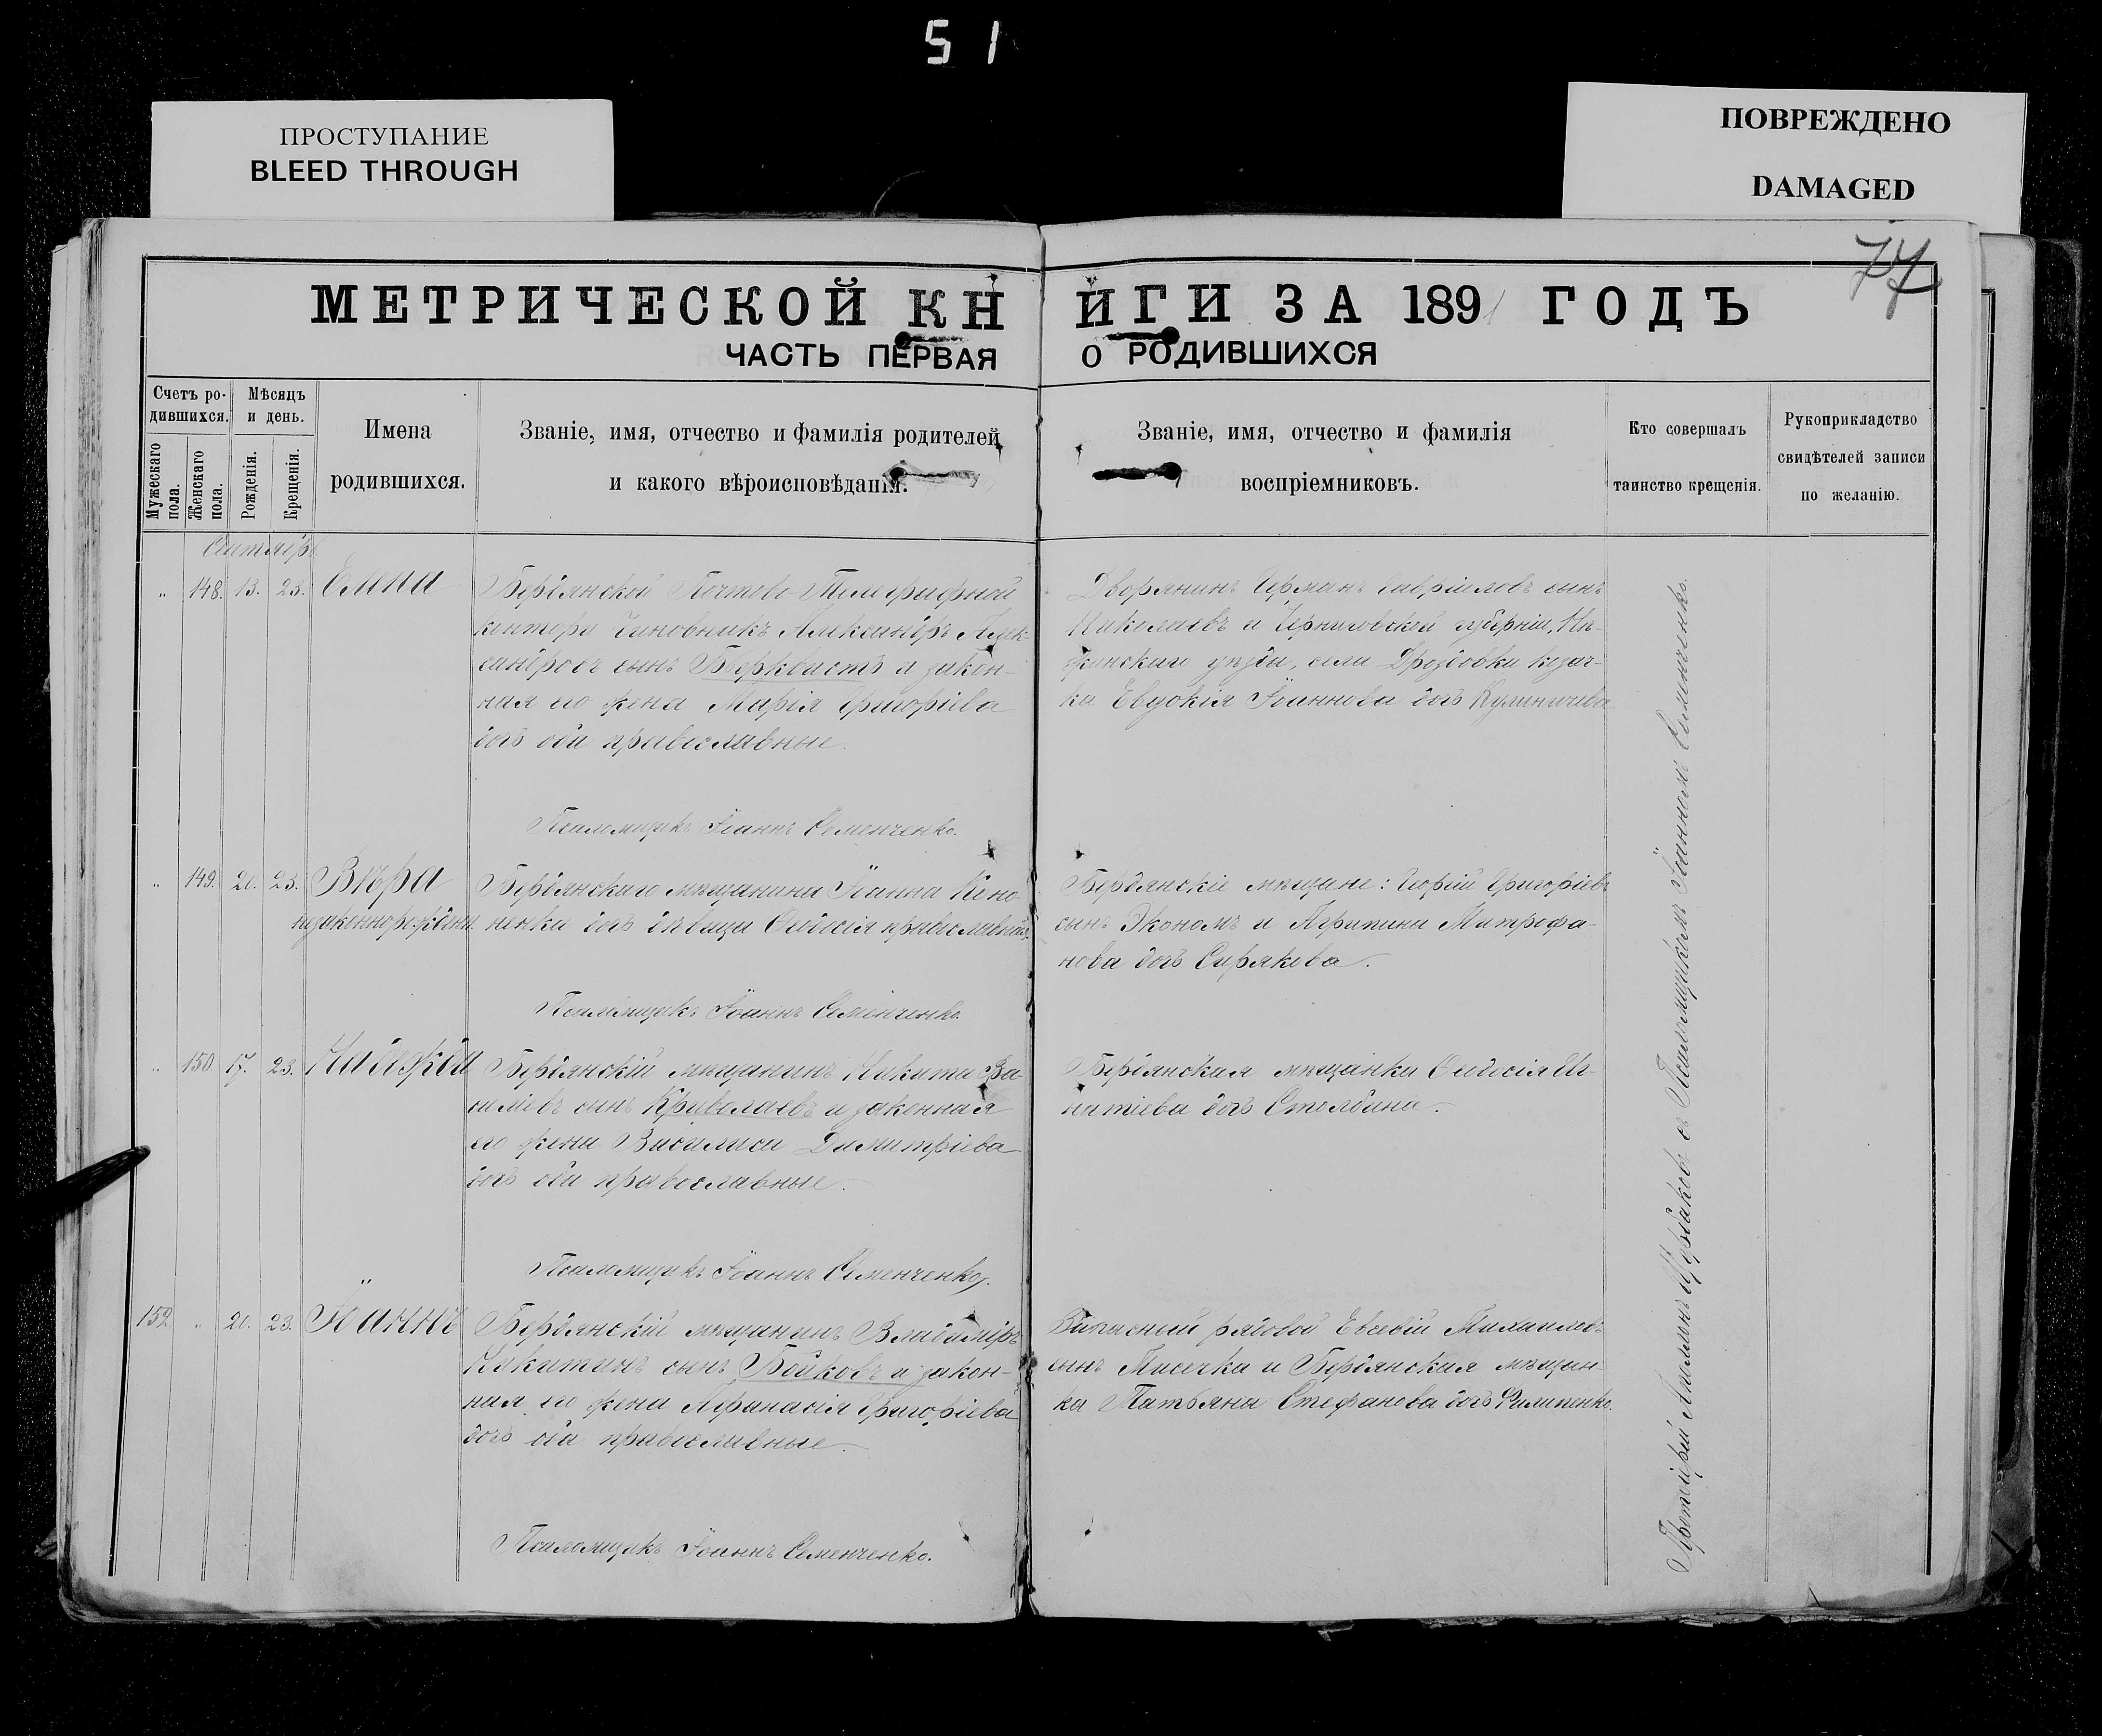 51
ПРОСТУПАНИЕ
BLEED THROUGH
ПОВРЕЖДЕНО
DAMAGED
77
МЕТРИЧЕСКОЙ КНИГИ ЗА 1891 ГОДЪ
ЧАСТЬ ПЕРВАЯ О РОДИВШИХСЯ
Счетъ ро-
дившихся.
Мужескаго
пола.
Женскаго
пола.
Мѣсяцъ
и день.
Рожденія.
Крещенія.
Имена
родившихся.
Званіе, имя, отчество и фамилія родителей
и какого вѣроисповѣданія.
Званіе, имя, отчество и фамилія
воспріемниковъ.
Кто совершалъ
таинство крещенія.
Рукоприкладство
свидѣтелей записи
по желанію.
Сентябрь
" 148. 13. 23. Елена
Бердянской Почтово-Телеграфной
конторы чиновникъ Александръ Алек-
сандровъ сынъ и закон-
ная его жена Марія Григоріева
дочь оба православные.
Псаломщикъ Іоаннъ Семенченко.
Дворянинъ Гавріиловъ сынъ
Николаевъ и Черниговской губерніи, Нѣ-
жинскаго уѣзда, села Дроздовки козач-
ка Евдокія Іоаннова дочь
" 149. 20. 23. Вѣра
незаконнорожден.
Бердянскаго мѣщанина Іоанна Коно-
ненка дочь дѣвица Ѳеодосія православная.
Псаломщикъ Іоаннъ Семенченко.
Бердянскіе мѣщане: Георгій Григоріевъ
сынъ Экономъ и Агрипина Митрофа-
нова дочь Сирякова.
" 150. 17. 23. Надежда
Бердянскій мѣщанинъ Никита Ва-
силіевъ сынъ Криволаевъ и законная
его жена Василиса Димитріева
дочь оба православные.
Псаломщикъ Іоаннъ Семенченко.
Бердянская мѣщанка Ѳеодосія Иг-
натіева дочь Столбина.
152. " 20. 23. Іоаннъ
Бердянскій мѣщанинъ Владиміръ
Никитинъ сынъ Бойковъ и закон-
ная его жена Аѳанасія Григоріева
дочь оба православные.
Псаломщикъ Іоаннъ Семенченко.
Запасный рядовой Евсевій Михаиловъ
сынъ и Бердянская мѣщан-
ка Татьяна Стефанова дочь Филипенко.
Протоіерей съ Псаломщикомъ Іоанномъ Семенченко.